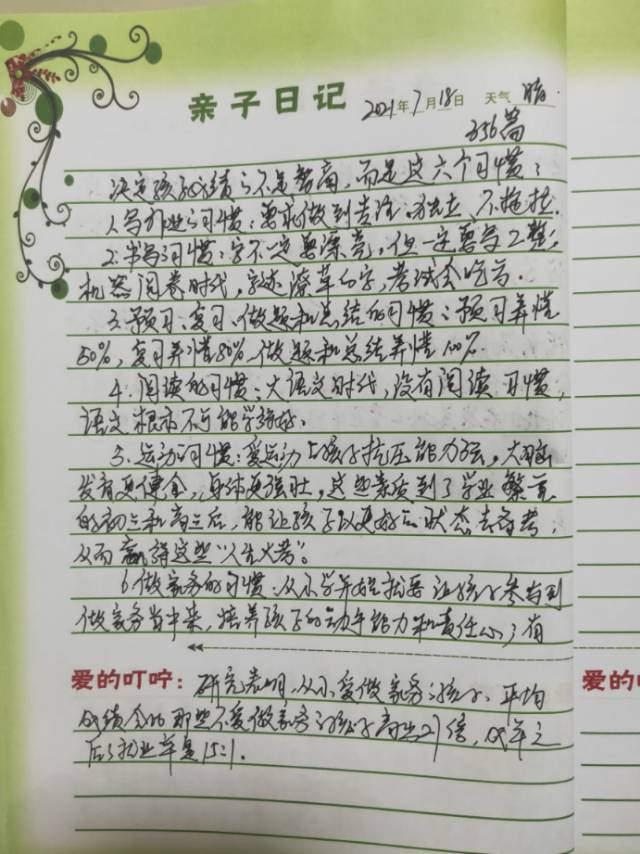 亲子日记 2021年7月18日 天气 晴
356篇
决定孩子成绩的不是智商,而是这六个习惯:
1.写作业的习惯:要求做到专注、独立、不拖拉.
2.书写习惯:字不一定要漂亮,但一定要写工整,
机器阅卷时代,字迹潦草的字,考试会吃亏.
3.预习、复习、做题和总结的习惯:预习弄懂
50%,复习弄懂80%,做题和总结弄懂100%.
4.阅读的习惯:大语文时代,没有阅读习惯,
语文根本不可能学得好.
5.运动的习惯:爱运动的孩子抗压能力强,大脑
发育更健全,身体更强壮,这些素质到了学业繁重
的初三和高三后,能让孩子以更好的状态去备考,
从而赢得这些“人生大考”。
6.做家务的习惯.从小学开始就要让孩子参与到
做家务当中来,培养孩子的动手能力和责任心;有
爱的叮咛:研究表明,从小爱做家务的孩子,平均
成绩会比那些不爱做家务的孩子高出27倍,成年之
后的就业率是15:1.
爱的